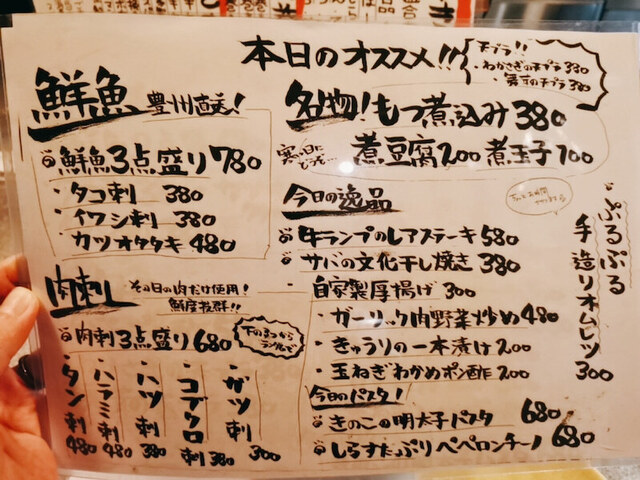 本日のオススメ!!
天プラ!!
・わかさぎの天プラ 380
・舞茸の天プラ 380
鮮魚 豊州直送!
鮮魚3点盛り 780
・タコ刺 380
・イワシ刺 380
・カツオタタキ 480
肉刺し その日の肉だけ使用!
鮮度抜群!!
肉刺3点盛り 680
下の5つから
・ガツ刺 300
・コブクロ刺 380
・ハツ刺 380
・ハラミ刺 480
・タン刺 480
名物!もつ煮込み 380
寒い日に
煮豆腐 200 煮玉子 100
今日の逸品
牛ランプのレアステーキ 580
サバの文化干し焼き 380
・自家製厚揚げ 300
・ガーリック肉野菜炒め 480
・きゅうりの一本漬け 200
・玉ねぎわかめポン酢 200
今日のパスタ!
きのこの明太子パスタ 680
しらすたっぷりペペロンチーノ 680
ぷるぷる
手造りオムレツ 300